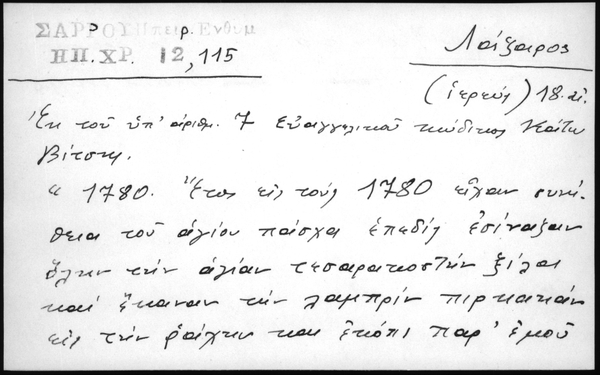 ΣΑΡΡΟΥ Ηπειρ. Ενθυμ
ΗΠ. ΧΡ. 12, 115
Λάζαρος
(ἱερεύς) 18. αἰ.
Ἐκ τοῦ ὑπ' ἀριθμ. 7 Εὐαγγελικοῦ κώδικος Κάτω
Βίτσης.
« 1780. Ἔτος εἰς τούς 1780 εἶχαν συνή-
θεια τοῦ ἁγίου πάσχα ἐπεδίς ἐσίναξαν
ὅλην τήν ἁγίαν τεσαρακοστήν ξίλα
καί ἔκαναν τήν λαμπρίν πιρκακάν
εἰς τήν ῥάχην και ἐκόπι παρ' ἐμοῦ